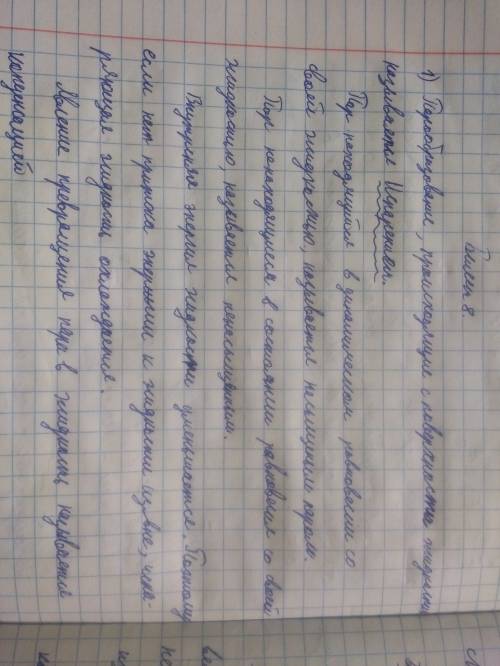 Билет 8.
1) Парообразование, происходящие с поверхности жидкости
называется Испарением.
Пар находящийся в динамическом равновесии со
своей жидкостью, называется насыщенным паром.
Пар не находящиеся в состоянии равновесия со своей
жидкостью, называется ненасыщенным.
Внутренняя энергия жидкости уменьшается. Поэтому
если нет притока энергии к жидкости извне, испа-
ряющая жидкость охлаждается.
Явление превращения пара в жидкость называется